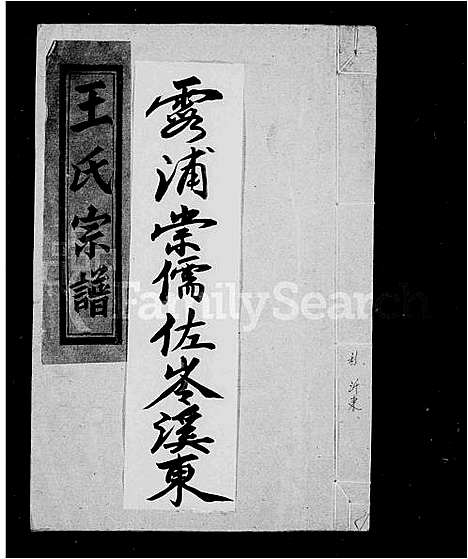 王氏宗譜
露浦崇儒佐岺溪東
FamilySearch
沂東